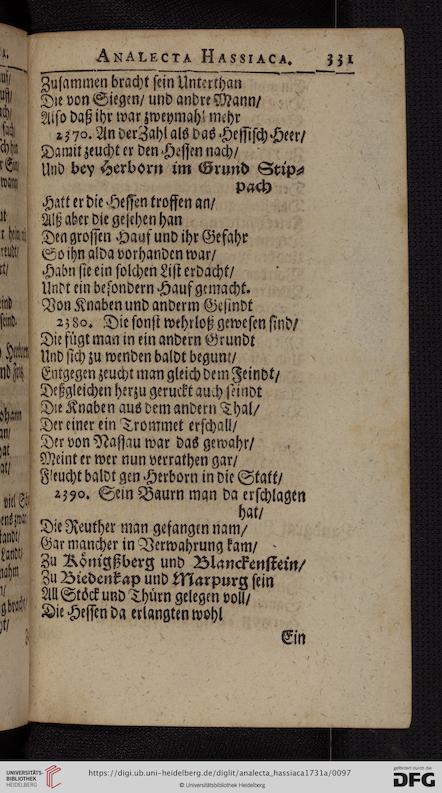 ANALECTA HASSIACA. 331
Zusammen bracht sein Unterthan
Die von Siegen/ und andre Mann/
Also daß ihr war zweymahl mehr
2370. An der Zahl als das Hessisch Heer/
Damit zeucht er den Hessen nach/
Und bey Herborn im Grund Stip-
pach
Hatt er die Hessen troffen an/
Alß aber die gesehen han
Den grossen Hauf und ihr Gefahr
So ihn alda vorhanden war/
Habn sie ein solchen List erdacht/
Undt ein besondern Hauf gemacht.
Von Knaben und anderm Gesindt
2380. Die sonst wehrloß gewesen sind/
Die fügt man in ein andern Grundt
Und sich zu wenden baldt begunt/
Entgegen zeucht man gleich dem Feindt/
Deßgleichen herzu geruckt auch seindt
Die Knaben aus dem andern Thal/
Der einer ein Trommet erschall/
Der von Nassau war das gewahr/
Meint er wer nun verrathen gar/
Fleucht baldt gen Herborn in die Statt/
2390. Sein Baurn man da erschlagen
hat/
Die Reuther man gefangen nam/
Gar mancher in Verwahrung kam/
Zu Königßberg und Blanckenstein/
Zu Biedenkap und Marpurg sein
All Stöck und Thürn gelegen voll/
Die Hessen da erlangten wohl
Ein
UNIVERSITÄTS-
BIBLIOTHEK
HEIDELBERG
https://digi.ub.uni-heidelberg.de/diglit/analecta_hassiaca1731a/0097
© Universitätsbibliothek Heidelberg
gefördert durch die
DFG